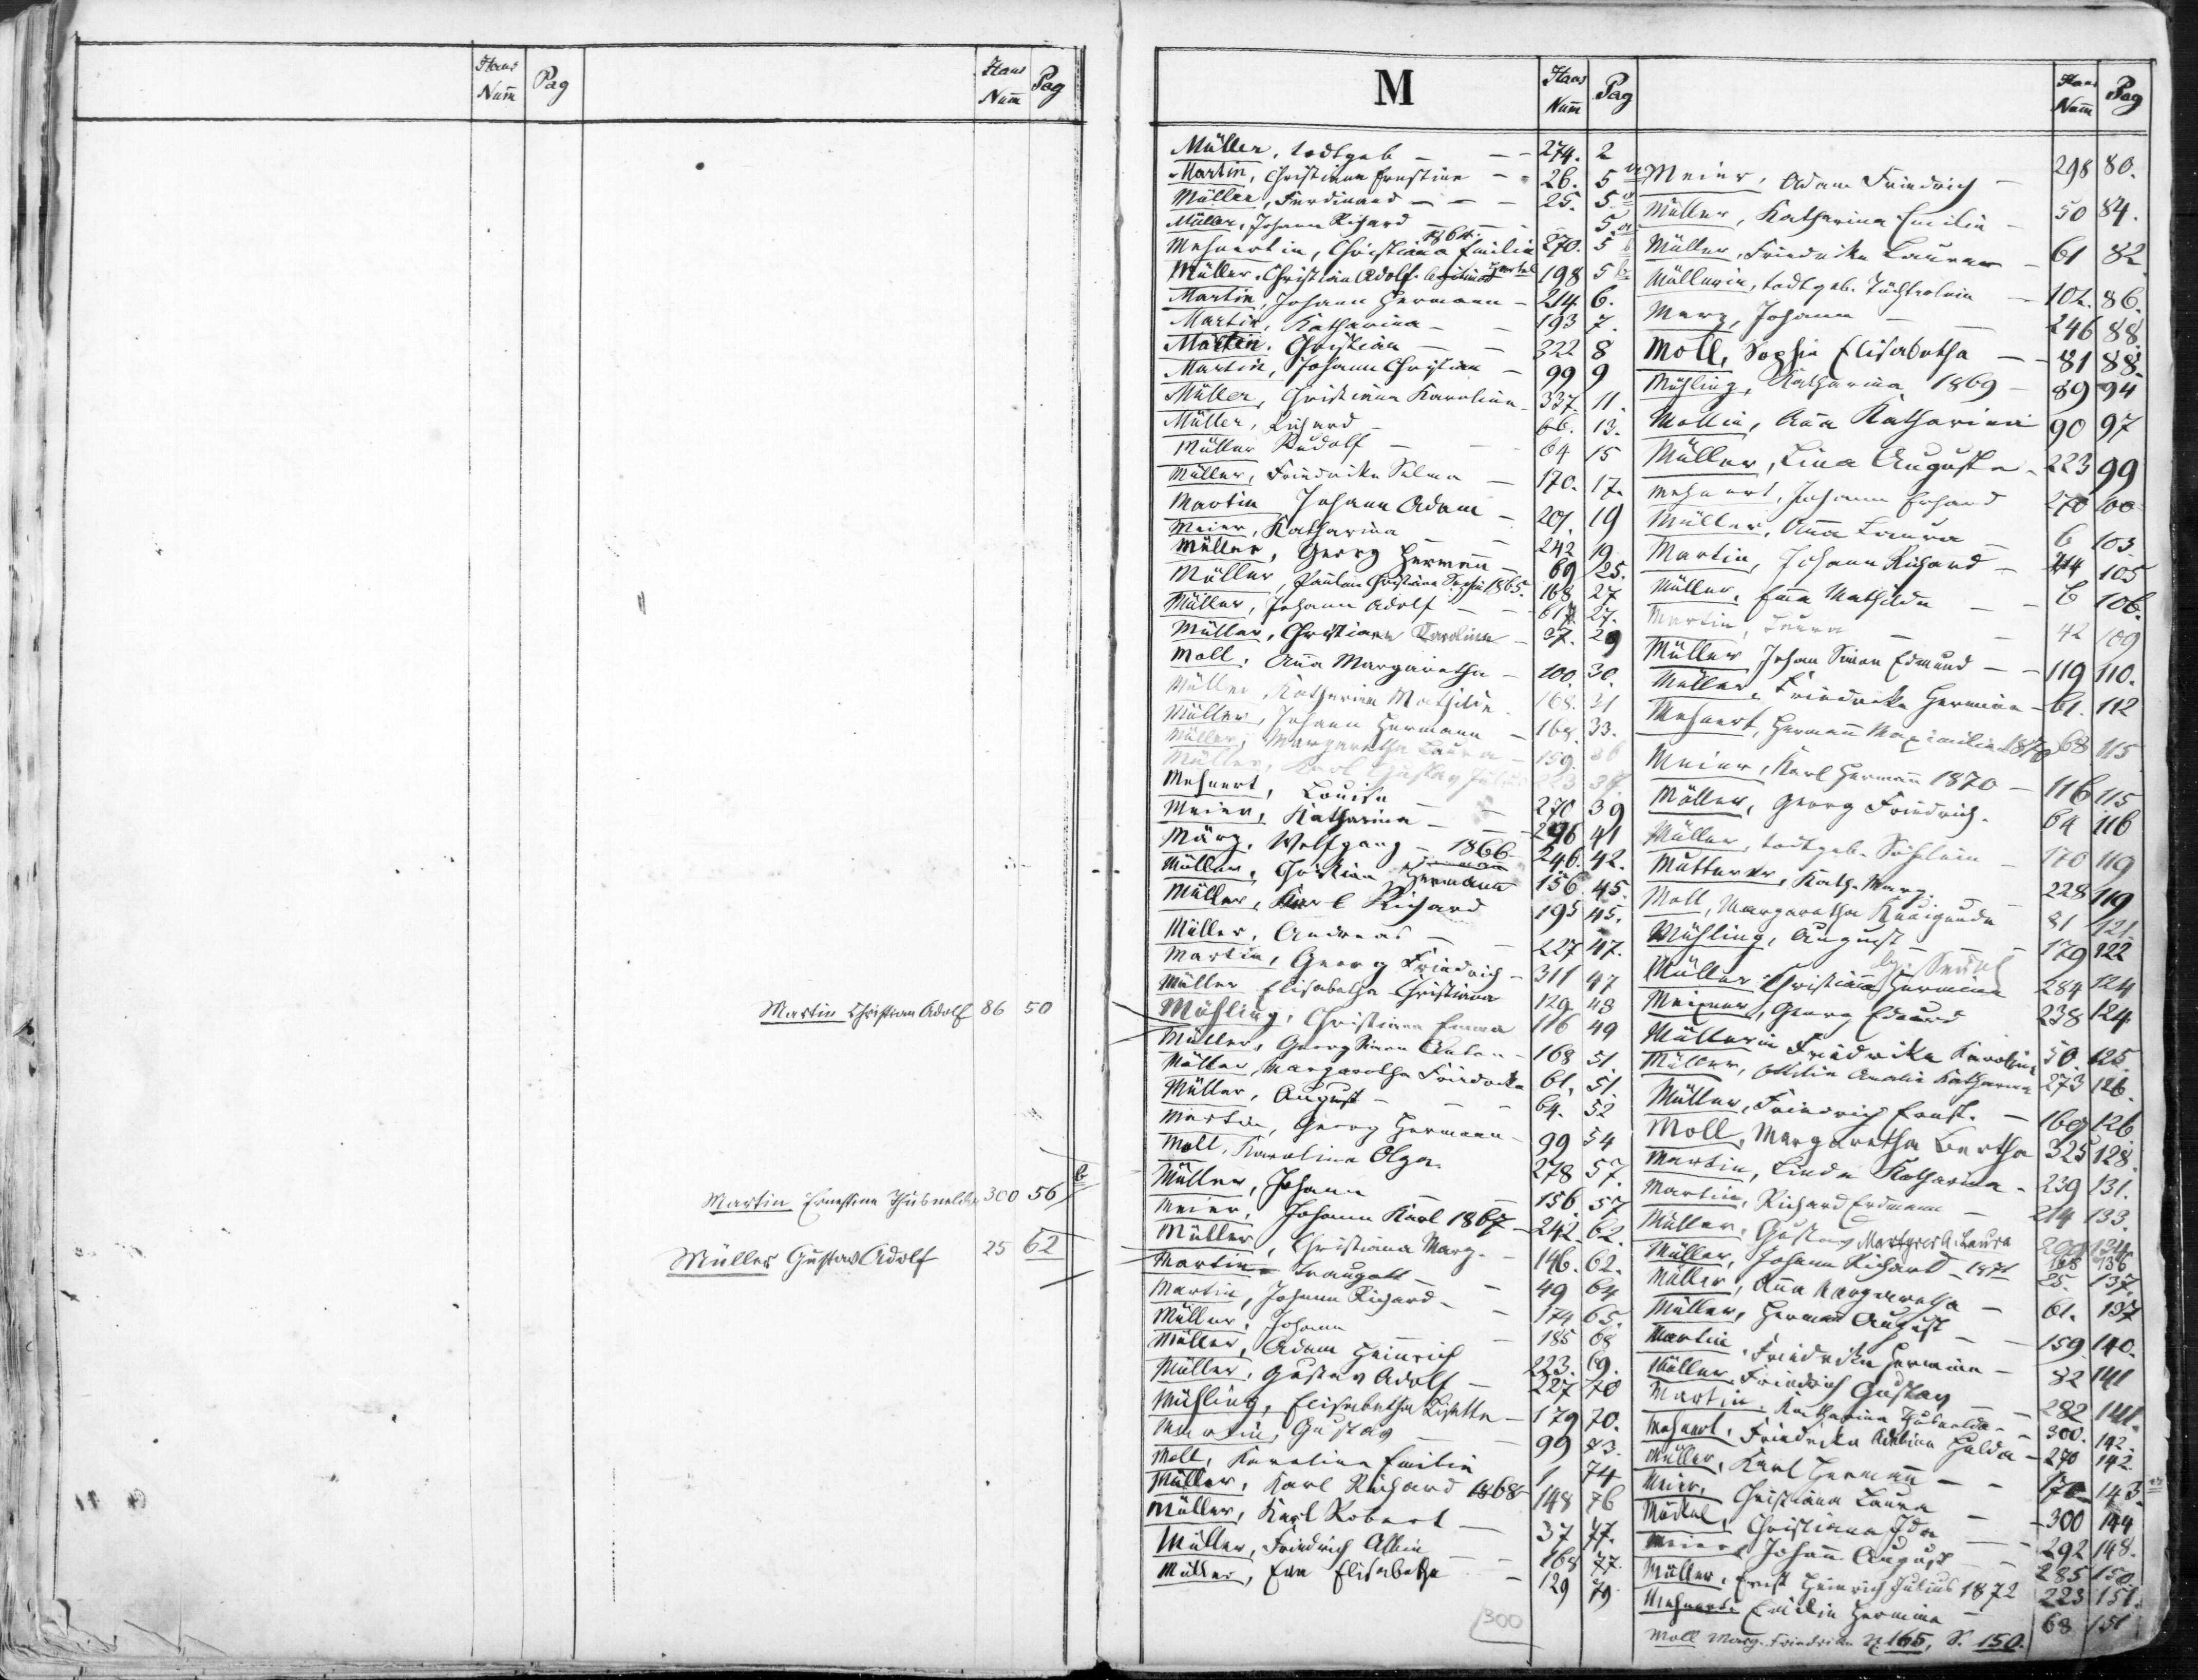 Haus Num̄ Pag
Haus Num̄ Pag
Martin Christian Adolf 86 50
Martin Ernestine Thusnelda 300 56 b
Müller Gustav Adolf 25 62
M Haus Num̄ Pag
Müller, todtgeb 274. 2
Martin, Christiana Ernstine 26. 5
Müller, Ferdinand 25. 5
Müller, Johann Richard 5
1864.
Mehnertin, Christiana Emilie 270. 5
Müller, Christian Adolf 198 5
Martin, Johann Hermann 214. 6.
Martin, Katharina 193 7.
Martin. Christian 322 8
Martin, Johann Christian 99 9
Müller, Christiana Karolina 337. 11.
Müller, Richard 66. 13.
Müller Rudolf 64 15
Müller, Friedrike Selma 170. 17.
Martin Johann Adam 201. 19
Meier, Katharina 242 19
Müller, Georg Hermann 69 25.
Müller, Pauline Christiana Sophie 1865. 168 27
Müller, Johann Adolf 27.
Müller, Christiana Karolina 37. 29
Moll, Anna Margaretha 100. 30.
Müller, Katharina Mathilde 168. 31
Müller, Johann Hermann 33.
Müller, Margaretha Laura 159. 36
Müller, Karl Gustav Julius 223 38
Mehnert, Louise 270 39
Meier, Katharina 296 41
März, Wolfgang 1866 246. 42.
Müller, Christian Hermann 156 45.
Müller, Karl Richard 195 45.
Müller, Andreas 227 47.
Martin, Georg Friedrich 311 47
Müller Elisabetha Christiana 129 48
Mühling, Christiana Emma 116 49
Müller, Georg Simon Anton 168 51
Müller, Margaretha Friedrike 61. 51
Müller, August 64. 52
Martin, Georg Hermann 99 54
Moll, Karolina Olga 278 57.
Müller, Johann 156. 57
Meier, Johann Karl 1867 242. 62.
Müller, Christiana Marg. 146. 62.
Martin, Traugott 49 64
Martin, Johann Richard 174 65.
Müller, Johann 185 68
Müller, Adam Heinrich 223. 69.
Müller, Gustav Adolf 227 70
Mühling, Elisabetha Lisette 179 70.
Martin, Gustav 99 73.
Moll, Karolina Emilie 1. 74
Müller, Karl Richard 1868 148 76
Müller, Karl Robert 37 77.
Müller, Friedrich Albin 168 77.
Müller, Eva Elisabetha 129 79
300
Haus Num̄ Pag
Meier, Adam Friedrich 298 80.
Müller, Katharina Emilie 50 84.
Müller, Friedrike Laura 61 82
Müllerin, todtgeb. Töchterlein 102. 86.
Merz, Johann 246 88.
Moll, Sophie Elisabetha 81 88.
Mühling, Katharina 1869 89 94
Mollin, Anna Katharina 90 97
Müller, Lina Auguste 223 99
Mehnert, Johann Erhard 270 100
Müller, Anna Laura 6 103
Martin, Johann Richard 105
Müller, Emma Mathilde 6 106.
Martin, Laura 42 109
Müller Johann Simon Edmund 119 110.
Müller, Friedrike Hermine 61. 112
Mehnert, Hermann Maximilian 1870 68 115
Meier, Karl Hermann 1870 116 115
Müller, Georg Friedrich 64 116
Müller, todtgeb. Söhnlein 170 119
Mutterer, Kath. Marg. 228 119
Moll, Margaretha Kunigunda 81 121.
Mühling, August 179 122
Müller Christiana Hermine 284 124
Meixner, Georg Eduard 238 124
Müllerin Friedrika Karolina 50. 125.
Müller, Ottilie Amalie Katharina 273 126.
Müller, Friedrich Ernst. 169 126
Moll, Margaretha Bertha 325 128.
Martin, Linda Katharina 239 131.
Martin, Richard Erdmann 214 133.
Müller, Gustav 134
Margareth. Laura 168 136
Müller, Johann Richard 1871 25. 137.
Müller, Anna Margaretha 61. 137
Müller, Hermann August 159 140.
Martin, Friedrika Hermine 82 141
Müller Friedrich Gustav 282 141.
Martin, Katharina Thusnelda 300. 142.
Mehnert, Friedrika Albina Hulda 270 142.
Müller, Karl Hermann 170 143.
Meier, Christiana Laura 300 144
Märkel, Christiana Ida 292 148.
Meier, Johann August 285 150.
Müller, Ernst Heinrich Julius 1872 223 151.
Mehnert, Emilie Hermine 68 151
Moll Marg. Friedrika 165, S. 150.